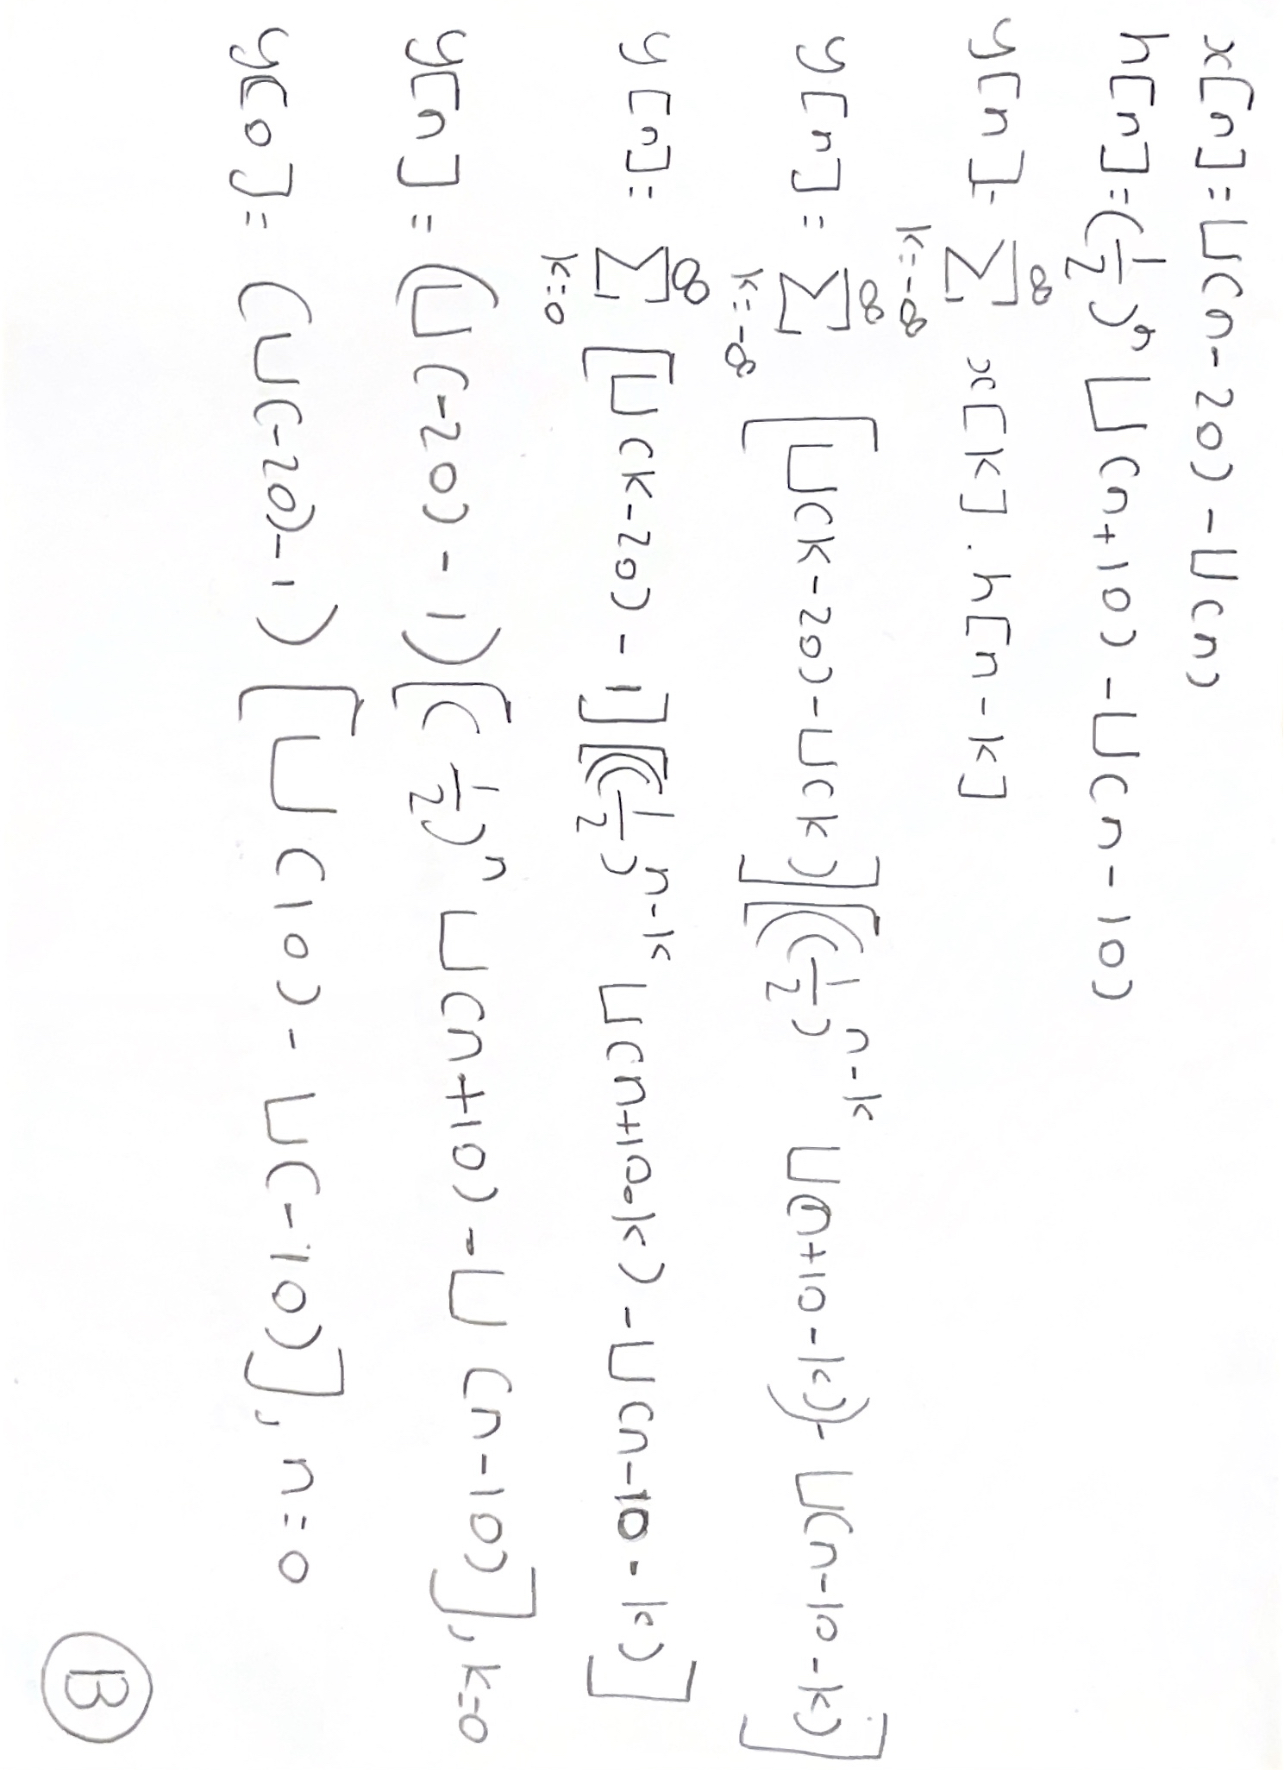 x[n] = U(n-20) - U(n)
h[n] = (1/2)^n U(n+10) - U(n-10)
y[n] = ∑_{k=-∞}^{∞} x[k] . h[n-k]
y[n] = ∑_{k=-∞}^{∞} [U(k-20) - U(k)][((1/2)^{n-k} U(n+10-k)) - U(n-10-k)]
y[n] = ∑_{k=0}^{∞} [U(k-20) - 1][((1/2)^{n-k} U(n+10-k) - U(n-10-k)]
y[n] = (U(-20) - 1)[(1/2)^n U(n+10) - U(n-10)], k=0
y[0] = (U(-20) - 1)[U(10) - U(-10)], n=0
B